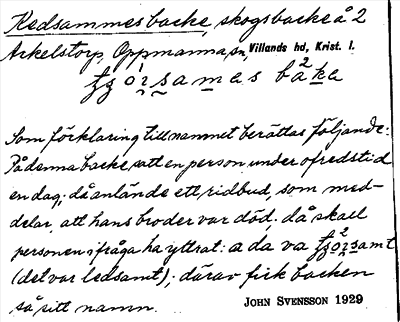 Kedsammesbacke, skogsbacke å 2
Arkelstorp, Oppmanna sn, Villands hd, Krist. l.
bå2ka
Som förklaring till namnet berättas följande:
På denna backe satt en person under ofredstid
en dag; då anlände ett ridbud, som med-
delar, att hans broder var död; då skall
personen i fråga ha yttrat: a da va
(det var ledsamt); därav fick backen
så sitt namn.
JOHN SVENSSON 1929